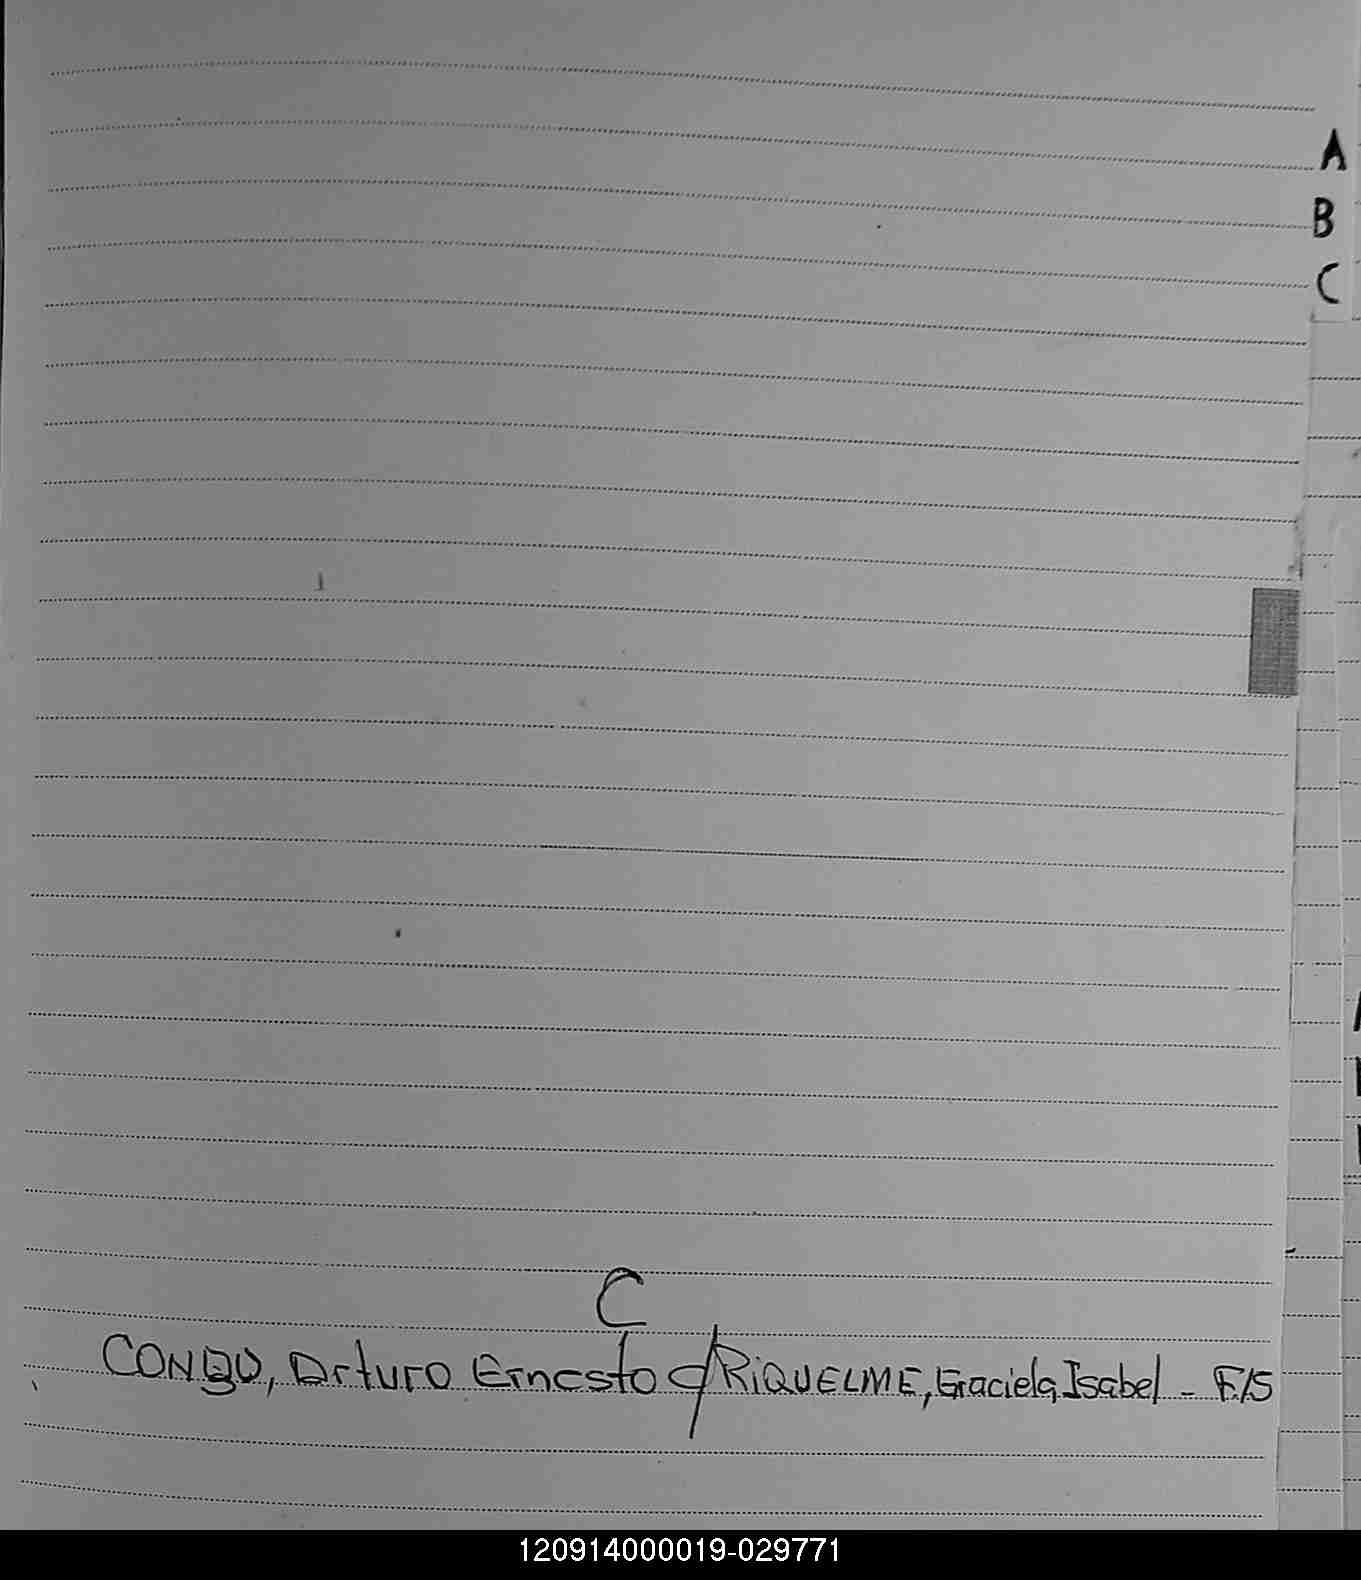 A
B
C
C
Arturo Ernesto c/ RIQUELME, Graciela Isabel - F.15
120914000019-029771